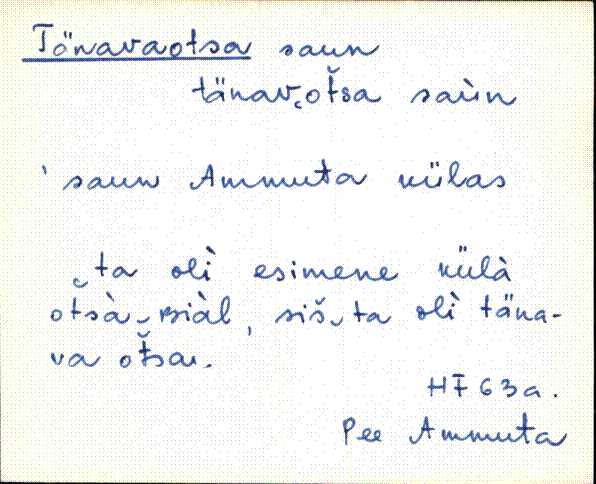 Tänavaotsa saun
tänav͜ot̆sa saùn
' saun Ammuta külas
͜ta olì esimene külà
ot̆sà͜ piàl, siš͜ ta olì täna-
va ot̆sa.
HF 63a.
Pee Ammuta